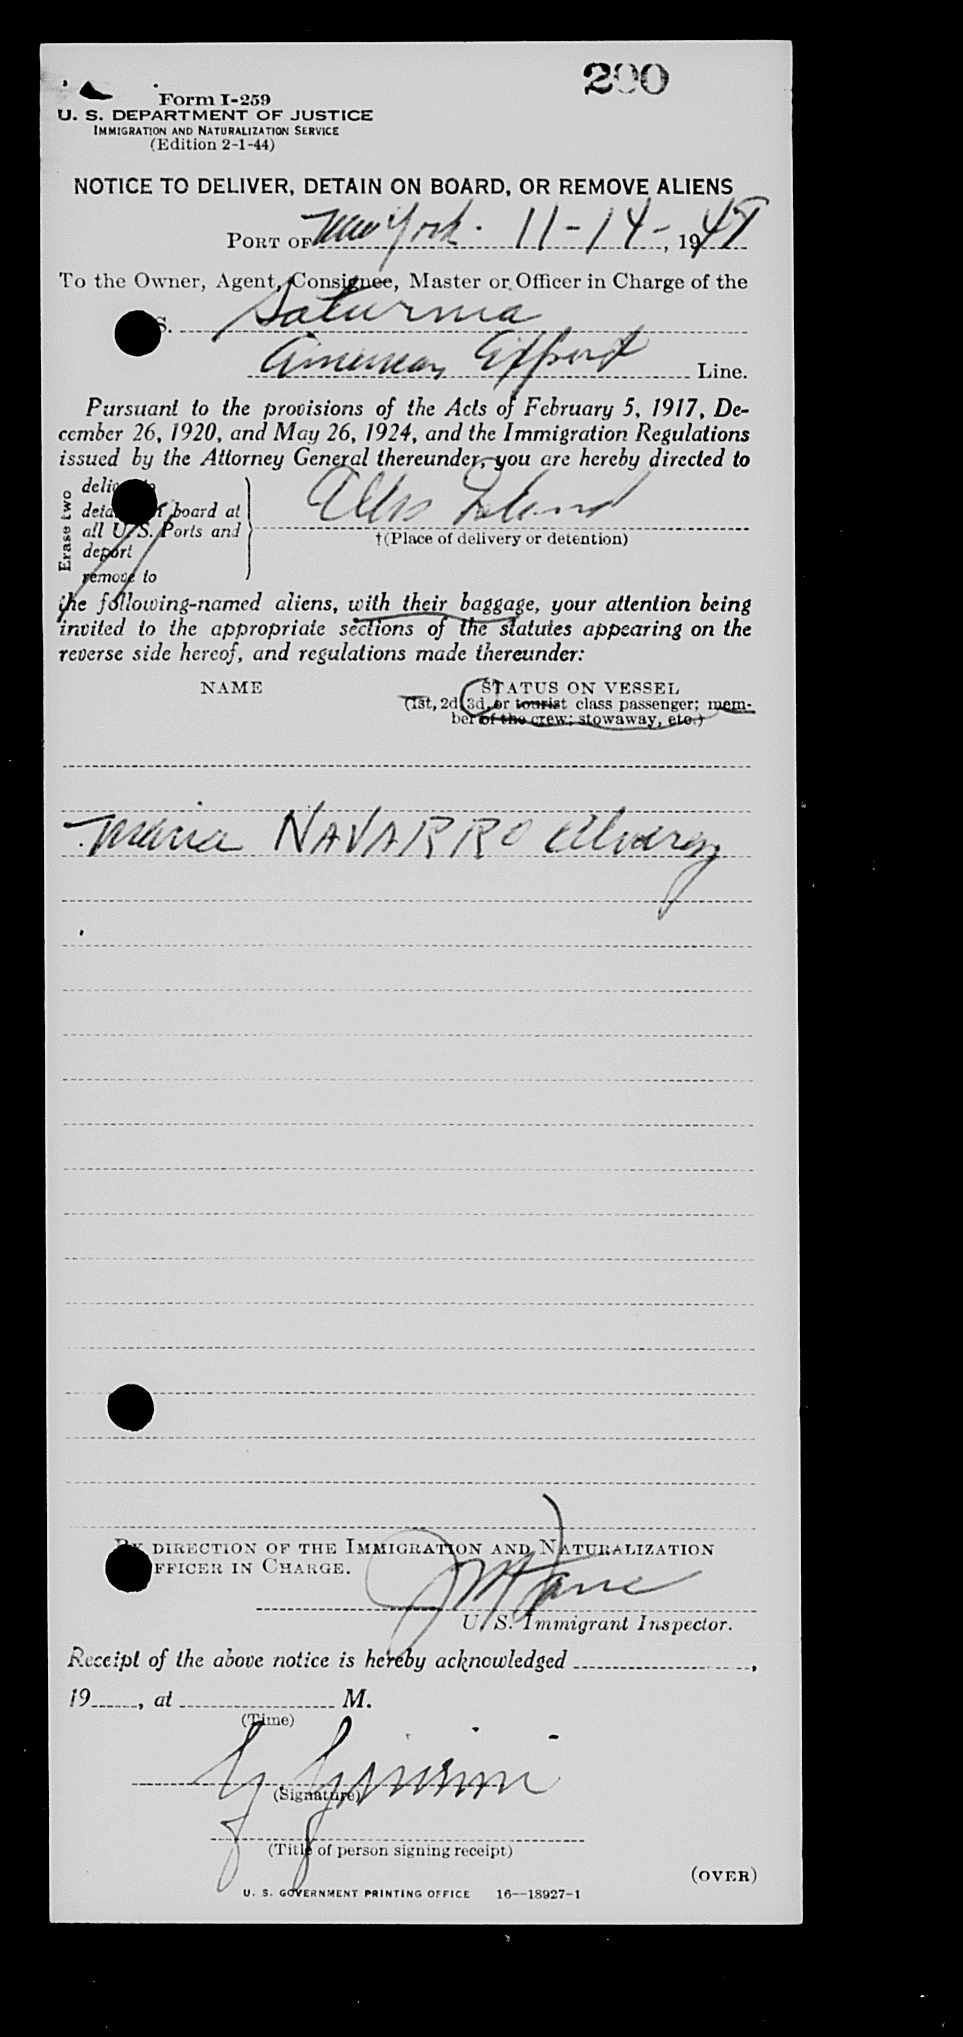 200
Form I-259
U. S. DEPARTMENT OF JUSTICE
IMMIGRATION AND NATURALIZATION SERVICE
(Edition 2-1-44)
NOTICE TO DELIVER, DETAIN ON BOARD, OR REMOVE ALIENS
PORT OF New York. 11-14-, 19
To the Owner, Agent, Consignee, Master or Officer in Charge of the
S. Saturnia
American Export Line.
Pursuant to the provisions of the Acts of February 5, 1917, De-
cember 26, 1920, and May 26, 1924, and the Immigration Regulations
issued by the Attorney General thereunder, you are hereby directed to
Erase two
board at
all U. S. Ports and
deport
remove to
Ellis Island
†(Place of delivery or detention)
the following-named aliens, with their baggage, your attention being
invited to the appropriate sections of the statutes appearing on the
reverse side hereof, and regulations made thereunder:
NAME STATUS ON VESSEL
(1st, 2d, 3d, or tourist class passenger; mem-
ber of the crew; stowaway, etc.)
Maria NAVARRO Alvarez
BY DIRECTION OF THE IMMIGRATION AND NATURALIZATION
FFICER IN CHARGE.
U. S. Immigrant Inspector.
Receipt of the above notice is hereby acknowledged ,
19 , at M.
(Time)
(Signature)
(Title of person signing receipt)
(OVER)
U. S. GOVERNMENT PRINTING OFFICE 16—18927-1